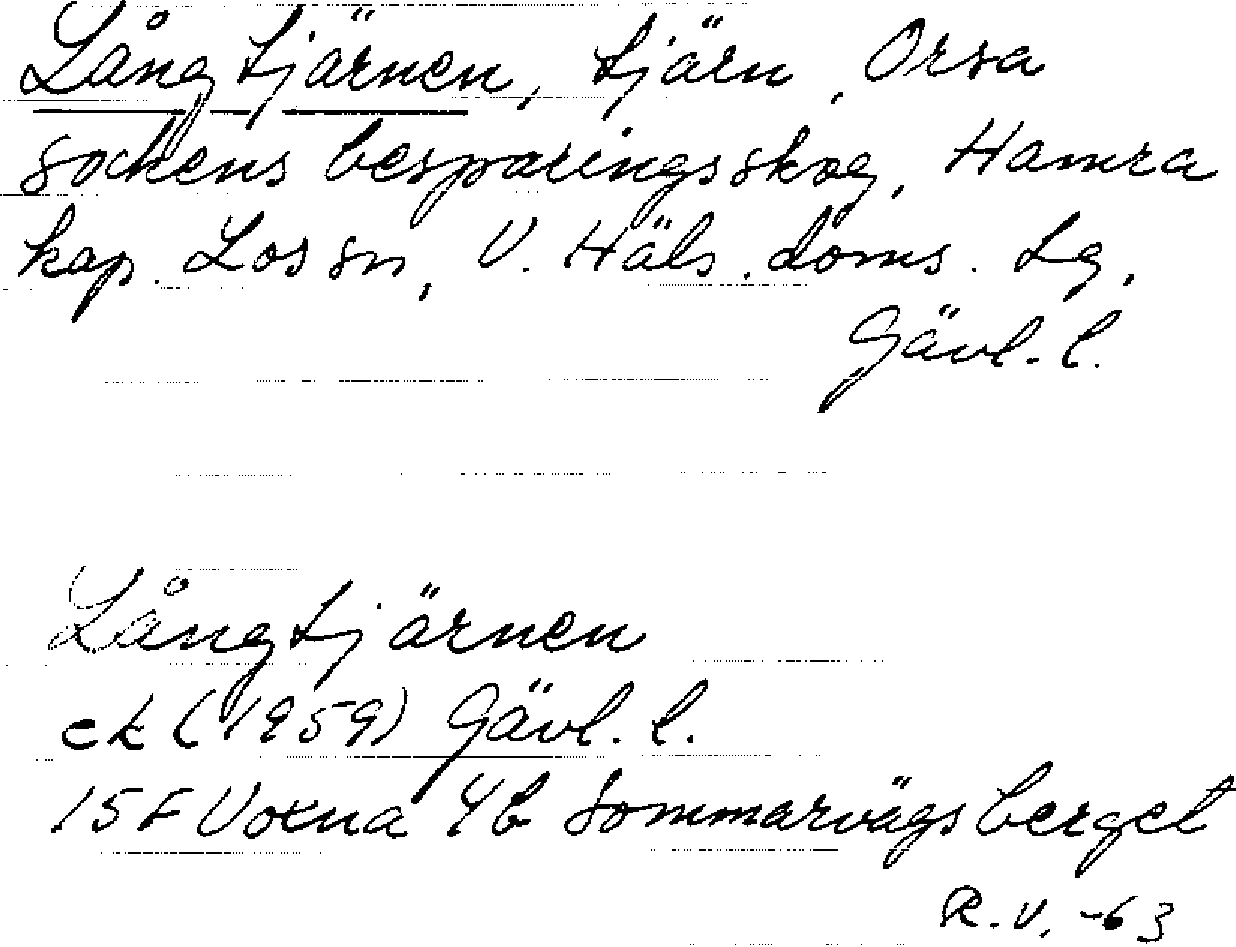 Långtjärnen, tjärn, Orsa
sockens besparingsskog, Hamra
kap. Los sn, V. Häls. doms. lg,
Gävl. l.
Långtjärnen
ek (1959) Gävl. l.
15F Voxna 4b Sommarvägsberget
R.V. -63